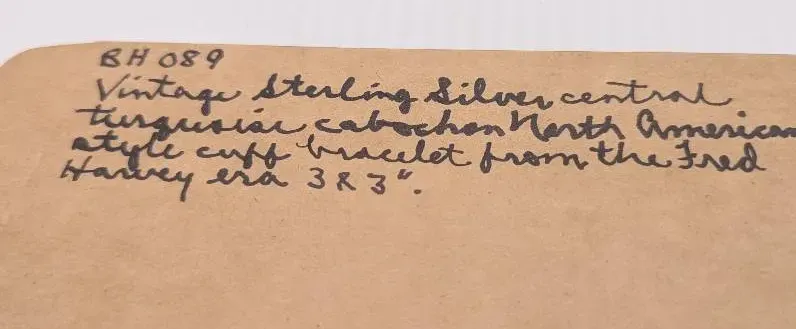 BH 089
Vintage Sterling Silver central
turquoise cabochon North American
style cuff bracelet from the Fred
Harvey era 3 & 3".